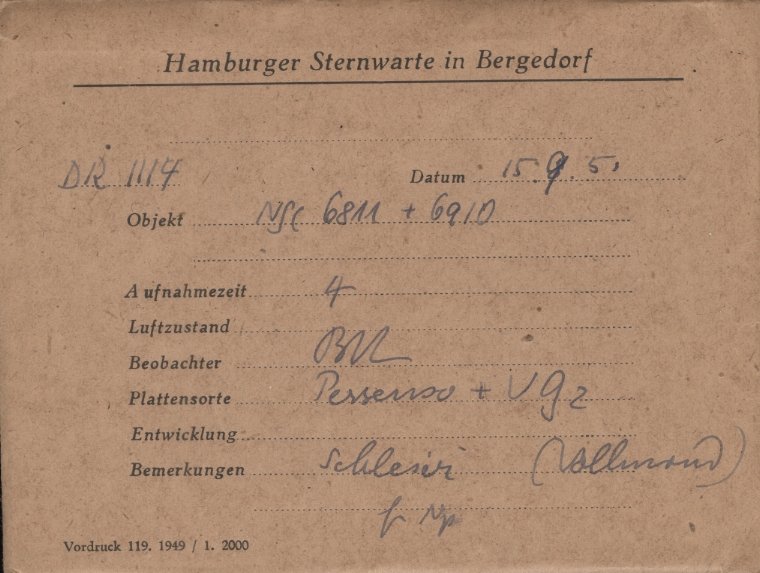 Hamburger Sternwarte in Bergedorf
DR 1114 Datum 15. 9. 51
Objekt NGC 6811 + 6910
Aufnahmezeit 4
Luftzustand
Beobachter
Plattensorte Persenso + VG2
Entwicklung
Bemerkungen Schleier (Vollmond)
Vordruck 119. 1949 / 1. 2000